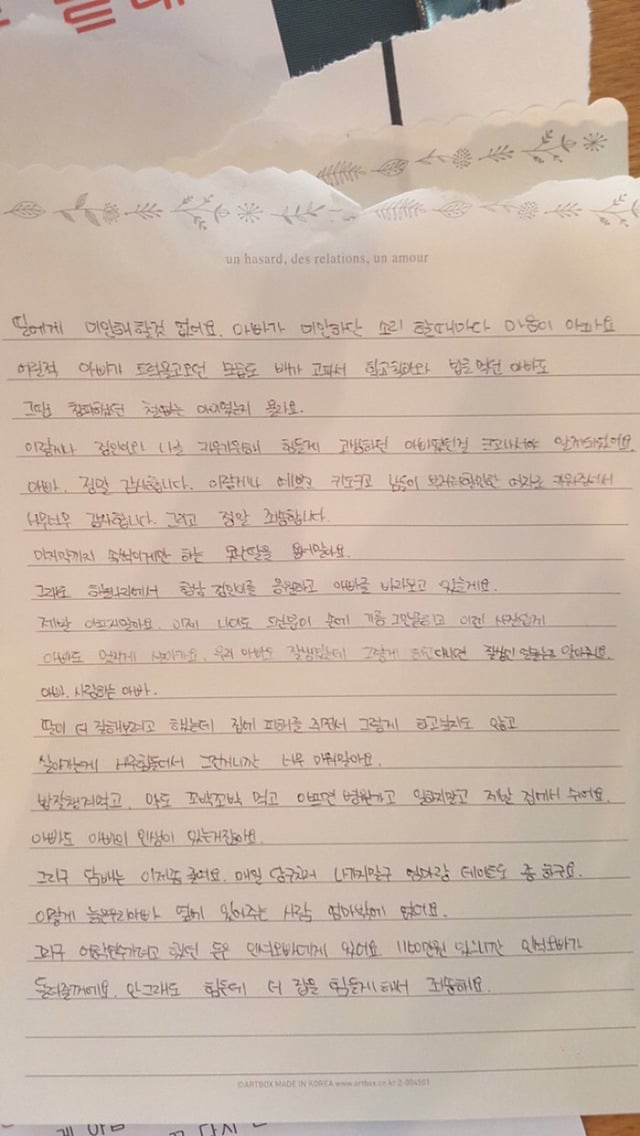 un hasard, des relations, un amour
딸에게 미안해할것 없어요. 아빠가 미안하단 소리 할때마다 마음이 아파요
어린적 아빠가 드러눕고오던 모습도 배가 고파서 밥을 먹던 아빠도
그땐 창피하했던 철없는 아이였는지 몰라요.
이렇게나 나를 키우기위해 힘들게 고생하던 아빠였던걸 크고나서야 알게되었어요.
아빠. 정말 감사합니다. 이렇게나 예쁘고 키도크고 남들이 부러워할만한 여자로 키워주셔서
너무너무 감사합니다. 그리고 정말 죄송합니다.
마지막까지 속썩이게만 하는 못난딸을 용서말아요.
그래도 하늘나라에서 항상 응원하고 아빠를 바라보고 있을게요.
제발 아프지말아요. 이제 나이도 손에 기름 그만묻히고 이런 사람답게
아빠도 멋지게 살아가요. 우리 아빠도 잘생겼는데 그렇게 하고다니면 잘생긴 얼굴을 알아줘요.
아빠. 사랑하는 아빠.
딸이 더 잘해보려고 했는데 집에 피해를 주면서 그렇게 하고싶지도 않고
살아가는게 너무힘들어서 그런거니깐 너무 미워말아요.
밥잘챙겨먹고. 약도 꼬박꼬박 먹고 아프면 병원가고 일하지말고 제발 집에서 쉬어요.
아빠도 아빠의 인생이 있는거잖아요.
그리구 담배는 이제좀 끊어요. 매일 당구치러 나가지말구 엄마랑 데이트도 좀 하구요.
이렇게 늙은우리아빠 옆에 있어주는 사람 엄마밖에 없어요.
그리구 했던 돈은 민석오빠에게 있어요. 1100만원 있으니깐 민석오빠가
돌려줄꺼에요. 안그래도 힘든데 더 짐을 힘들게해서 죄송해요.
©ARTBOX MADE IN KOREA www.artbox.co.kr 2-004501